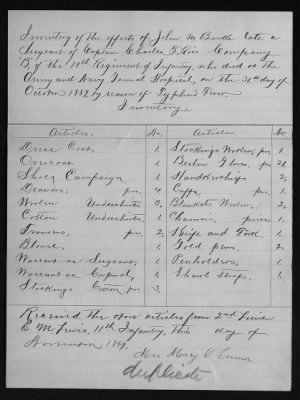 Inventory of the effects of John M. Burke late a
Sergeant of Captain Charles F. Company
"B" of the 11th Regiment of Infantry, who died at the
Army and Navy General Hospital, on the 31st day of
October 1889, by reason of Typhoid Fever.
Inventory.
Articles. No. Articles No.
Dress Coat, 1. Stockings Woolen, pr. 1.
Overcoat 1. Berlin Gloves, pr. 2.
Shoes Campaign 1. Handkerchiefs 2,
Drawers, prs. 4 Cuffs, pr. 1.
Woolen Undershirts 3. Blankets Woolen, 2,
Cotton Undershirts, 1. Chamois, piece 1.
Trowsers, prs. 2, Knife and Fork 1.
Blouse, 1. Gold pens, 2,
Warrant as Sergeant, 1. Penholders, 1.
Warrant as Corporal, 1. Shawl Strap, 1.
Stockings Cotton, prs. 3,
Received the above articles from 2nd Lieut.
E. M. Lewis, 11th Infantry, this day of
November 1889.
Mrs Mary O'Connor
duplicate